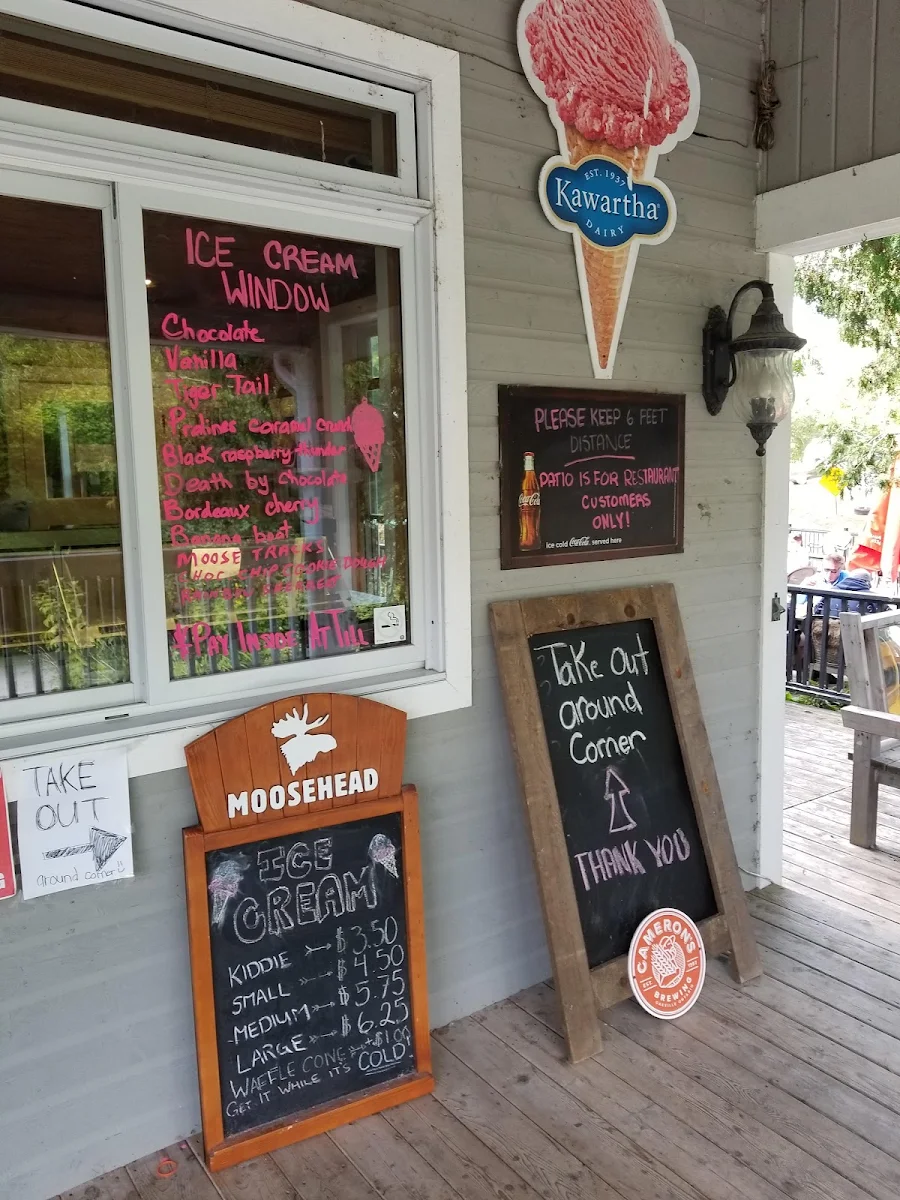 ICE CREAM
WINDOW
Chocolate
Vanilla
Tiger Tail
Pralines caramel
Black raspberry thunder
Death by chocolate
Bordeaux cherry
Banana boat
MOOSE TRACKS
CHOC CHIP COOKIE DOUGH
$PAY INSIDE AT TILL
EST. 1937
Kawartha
DAIRY
PLEASE KEEP 6 FEET
DISTANCE
PATIO IS FOR RESTAURANT
CUSTOMERS
ONLY!
Coca-Cola
Ice cold Coca-Cola served here
Take out
around
Corner
THANK YOU
CAMERON'S
BREWING
TAKE
OUT
around corner
MOOSEHEAD
ICE
CREAM
KIDDIE $3.50
SMALL $4.50
MEDIUM $5.75
LARGE $6.25
WAFFLE CONE +$1.00
GET IT WHILE IT'S COLD